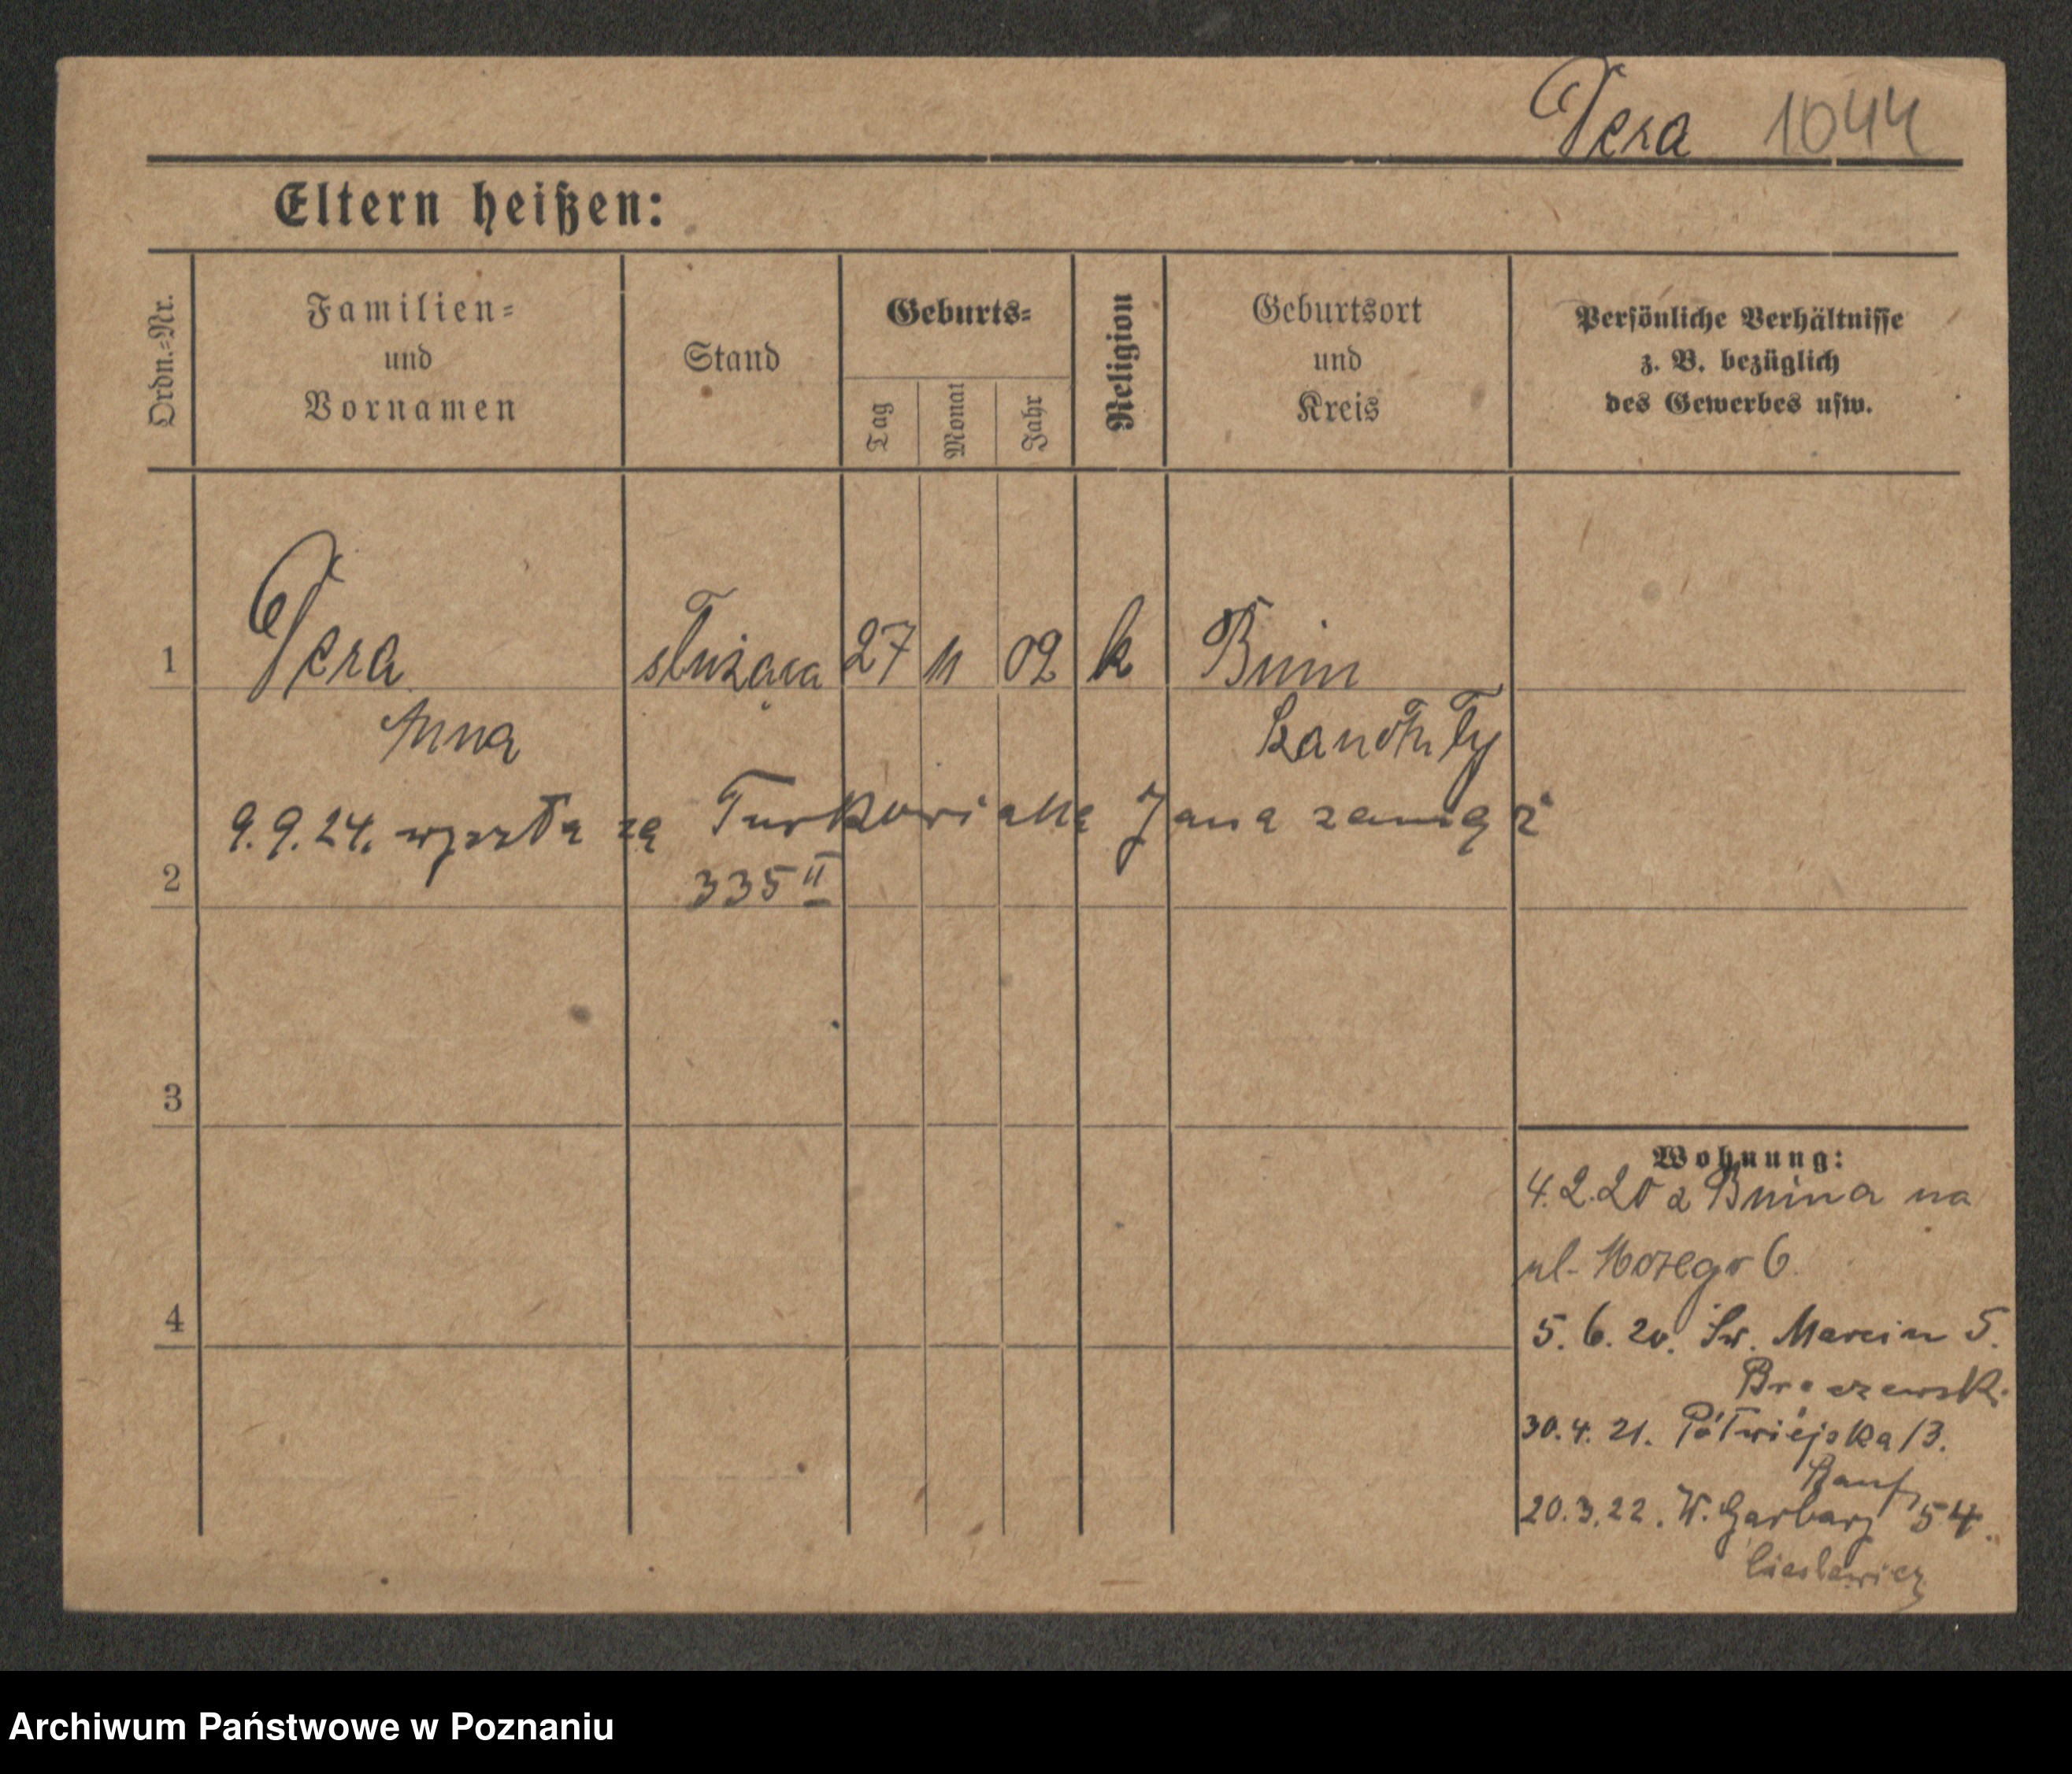 Pera 1044
Eltern heißen:
Ordn.=Nr.
Familien=
und
Vornamen
Stand
Geburts=
Tag
Monat
Jahr
Religion
Geburtsort
und
Kreis
Persönliche Verhältnisse
z. B. bezüglich
des Gewerbes usw.
1 Pera służąca 27 11 02 k Bnin
Anna
9.9.24. wyszła za Jana zamąż
2 335 II
3
4
Wohnung:
4.2.20 z Bnina na
ul. 6
5. 6. 20. Św. Marcin 5.
30. 4. 21. Półwiejska 13.
20.3.22. W. Garbary 54.
Cieslewicz
Archiwum Państwowe w Poznaniu